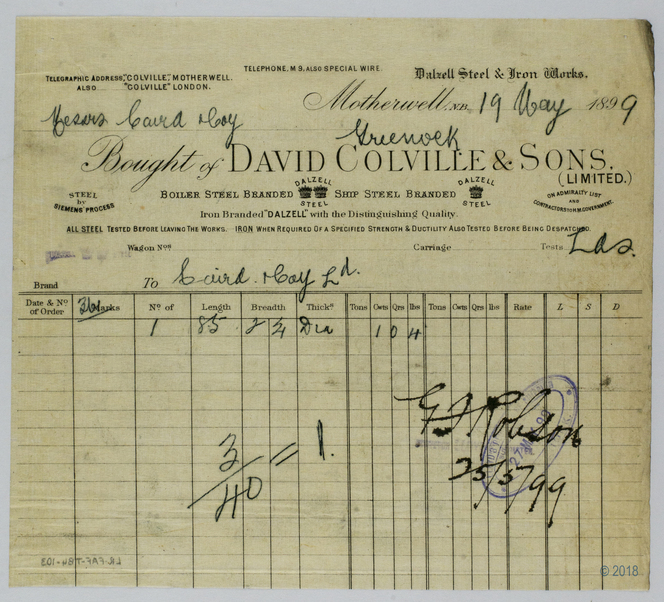 TELEPHONE. M 9. ALSO SPECIAL WIRE.
TELEGRAPHIC ADDRESS, "COLVILLE," MOTHERWELL.
ALSO "COLVILLE" LONDON.
Dalzell Steel & Iron Works.
Motherwell, N.B. 19 May 1899
Messrs Caird & Coy
Greenock
Bought of DAVID COLVILLE & SONS.
(LIMITED.)
STEEL by SIEMENS' PROCESS
BOILER STEEL BRANDED DALZELL STEEL SHIP STEEL BRANDED DALZELL STEEL
ON ADMIRALTY LIST AND CONTRACTORS TO H.M. GOVERNMENT.
Iron Branded "DALZELL" with the Distinguishing Quality.
ALL STEEL TESTED BEFORE LEAVING THE WORKS. IRON WHEN REQUIRED OF A SPECIFIED STRENGTH & DUCTILITY ALSO TESTED BEFORE BEING DESPATCHED.
Wagon Nos Carriage Tests Lds.
Brand To Caird & Coy Ld.
Date & No of Order Marks No of Length Breadth Thicks Tons Cwts Qrs lbs Tons Cwts Qrs lbs Rate L S D
1 85 2 1/4 Dia 1 0 4
G F Robson
3/40 = 1.
25/5/99
© 2018